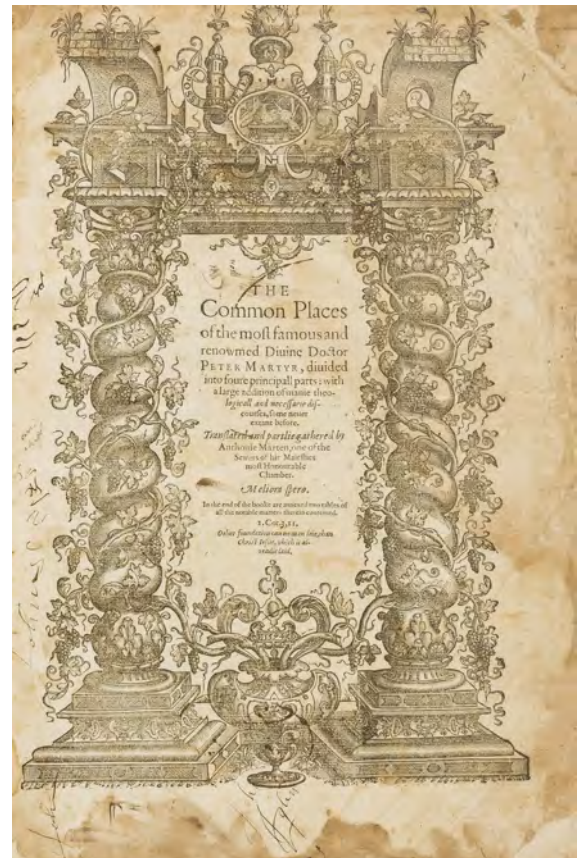 THE
Common Places
of the moſt famous and
renowmed Diuine Doctor
PETER MARTYR, diuided
into foure principall parts: with
a large addition of manie theo-
logicall and neceſſarie diſ-
courſes, ſome neuer
extant before.
Tranſlated and partlie gathered by
Anthonie Marten, one of the
Sewers of hir Maieſties
moſt Honourable
Chamber.
Meliora ſpero.
In the end of the booke are annexed two tables of
all the notable matters therein conteined.
1. COR. 3, 11.
Other foundation can no man laie, than
Chriſt Ieſus, which is al-
readie laid.